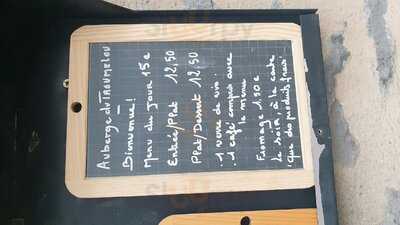 Auberge du TROUMELOU
Bienvenue!
Menu du Jour 15€
Entrée/Plat 12,50
Plat/Dessert 12,50
. 1 verre de vin.
. 1 café compris avec
le menu
Fromage 1,50€
le soir, à la carte
Que des produits frais